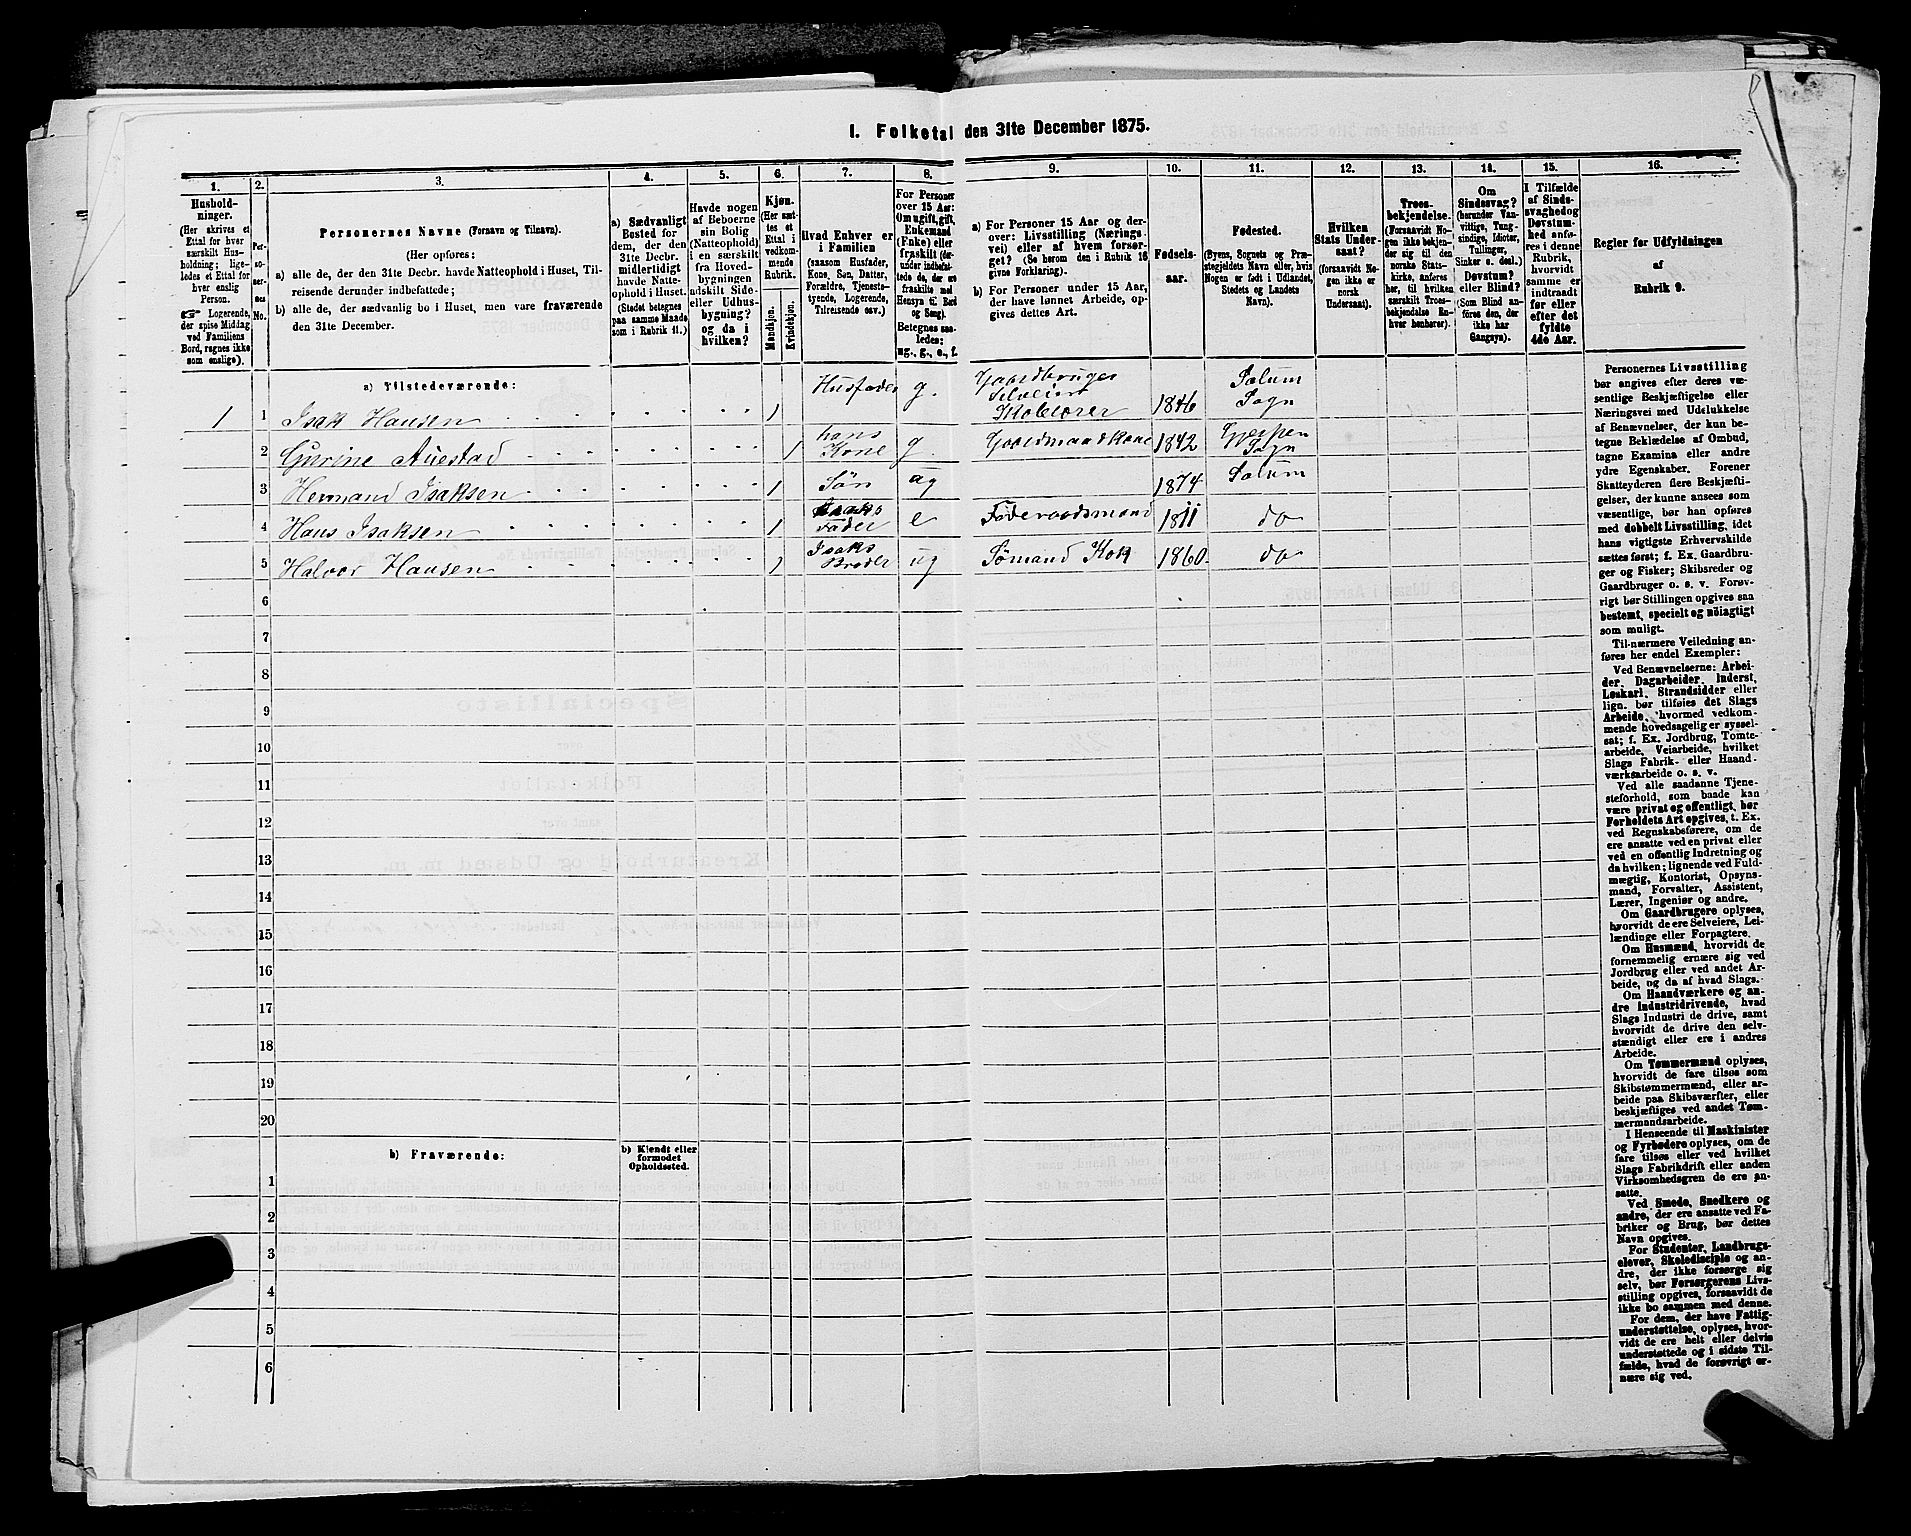 1. Folketal den 31te December 1875.
1.
2.
3.
4.
5.
6.
7.
8.
9.
10.
11.
12.
13.
14.
15.
16.
Husholdninger.
(Her skrives et
Ettal for hver
særskilt Husholdning; ligeledes
et Ettal for
hver enslig
Person.
☞ Logerende,
der spise Middag
ved Familiens
Bord, regnes ikke
som enslige).
Personernes No.
Personernes Navne (Fornavn og Tilnavn).
(Her opføres:
a) alle de, der den 31te Decbr. havde Natteophold i Huset, Tilreisende derunder indbefattede;
b) alle de, der sædvanlig bo i Huset, men vare fraværende
den 31te December.
a) Sædvanligt
Bosted for
dem, der den
31te Decbr.
midlertidigt
havde Natteophold
i Huset.
(Stedet betegnes
paa samme Maade
som i Rubrik 11.)
Havde nogen
af Beboerne
sin Bolig
(Natteophold)
i en særskilt
fra Hovedbygningen
adskilt Side-
eller Udhusbygning?
og da i
hvilken?
Kjøn.
(Her sættes
et
Ettal i
vedkommende
Rubrik.
Mandkjøn.
Kvindekjøn.
Hvad Enhver er
i Familien
(saasom Husfader,
Kone, Søn, Datter,
Forældre, Tjenestetyende,
Logerende,
Tilreisende osv.)
For Personer
over 15 Aar:
Om ugift, gift,
Enkemand
(Enke) eller
fraskilt (derunder
indbefattede,
de, der ere
fraskilte med
Hensyn til Bord
og Seng).
Betegnes saaledes:
ug., g., e., f.
a) For Personer 15 Aar og derover:
Livsstilling (Næringsvei)
eller af hvem forsørget?
(Se herom den i Rubrik 16
givne Forklaring).
b) For Personer under 15 Aar,
der have lønnet Arbeide, opgives
dettes Art.
Fødselsaar.
Fødested.
(Byens, Sognets og Præstegjeldets
Navn eller, hvis
Nogen er født i Udlandet,
Stedets og Landets
Navn).
Hvilken
Stats Undersaat?
(forsaavidt Nogen
ikke er
norsk
Undersaat).
Troesbekjendelse.
(Forsaavidt Nogen
ikke bekjender
sig til den
norske Statskirke,
anføres
her, til hvilken
særskilt Troesbekjendelse
Enhver
henhører).
Om
Sindssvag?
(herunder Vanvittige,
Tungsindige,
Idioter,
Tullinger,
Sinker o. desl.)
Døvstum?
eller Blind?
(Som Blind anføres
den, der
ikke har
Gangsyn).
I Tilfælde
af Sindssvaghed
og
Døvstumhed
anføres
i denne
Rubrik,
hvorvidt
samme er
indtraadt
før eller
efter det
fyldte
4de Aar.
Regler for Udfyldningen
af
Rubrik 9.
a) Tilstedeværende:
1 1 Isak Hansen 1 Husfader g. Gaardbruger Selveier 1846 Solum Sogn
2 Gurine Auestad 1 hans Kone g Gaardmandskone 1842 Gjerpen Sogn
3 Hermand Isaksen 1 Søn ug 1874 Solum
4 Hans Isaksen 1 Isaks Fader e Føderaadsmand 1811 do
5 Halvor Hansen 1 Isaks Broder ug Sømand Kok 1860 do
6
7
8
9
10
11
12
13
14
15
16
17
18
19
20
b) Fraværende:
b) Kjendt eller
formodet
Opholdssted.
1
2
3
4
5
6
Personernes Livsstilling
bør angives efter deres væsentlige
Beskjæftigelse eller
Næringsvei med Udelukkelse
af Benævnelser, der kun betegne
Beklædelse af Ombud,
tagne Examina eller andre
ydre Egenskaber. Forener
Skatteyderen flere Beskjæftigelser,
der kunne ansees som
væsentlige, bør han opføres
med dobbelt Livsstilling, idet
hans vigtigste Erhvervskilde
sættes først; f. Ex. Gaardbruger
og Fisker; Skibsreder og
Gaardbruger o. s. v. Forøvrigt
bør Stillingen opgives saa
bestemt, specielt og nøiagtigt
som muligt.
Til nærmere Veiledning anføres
her endel Exempler:
Ved Benævnelserne: Arbeider,
Dagarbeider, Inderst,
Løskarl, Strandsidder eller
lign. bør tilføies det Slags
Arbeide, hvormed vedkommende
hovedsagelig er sysselsat;
f. Ex. Jordbrug, Tomtearbeide,
Veiarbeide, hvilket
Slags Fabrik- eller Haandværksarbeide
o. s. v.
Ved alle saadanne Tjenesteforhold,
som baade kan
være privat og offentligt, bør
Forholdets Art opgives, t. Ex.
ved Regnskabsførere, om de
ere ansatte ved en privat eller
ved en offentlig Indretning og
da hvilken; lignende ved Fuldmægtig,
Kontorist, Opsynsmand,
Forvalter, Assistent,
Lærer, Ingeniør og andre.
Om Gaardbrugere oplyses,
hvorvidt de ere Selveiere, Leilændinge
eller Forpagtere.
Om Husmænd, hvorvidt de
fornemmelig ernære sig ved
Jordbrug eller ved andet Arbeide,
og da af hvad Slags.
Om Haandværkere og andre
Industridrivende, hvad
Slags Industri de drive, samt
hvorvidt de drive den selvstændigt
eller ere i andres
Arbeide.
Om Tømmermænd oplyses,
hvorvidt de fare tilsøs som
Skibstømmermænd, eller arbeide
paa Skibsværfter, eller
beskjæftiges ved andet Tømmermandsarbeide.
I Henseende til Maskinister
og Fyrbødere oplyses, om de
fare tilsøs eller ved hvilket
Slags Fabrikdrift eller anden
Virksomhedsgren de ere ansatte.
Ved Smede, Snedkere og
andre, der ere ansatte ved Fabriker
og Brug, bør dettes
Navn opgives.
For Studenter, Landbrugselever,
Skoledisciple og andre,
der ikke forsørge sig
selv, bør Forsørgerens Livsstilling
opgives, forsaavidt de
ikke bo sammen med denne.
For dem, der have Fattigunderstøttelse,
oplyses, hvorvidt
de ere helt eller delvis
understøttede og i sidste Tilfælde,
hvad de forøvrigt ernære
sig ved.